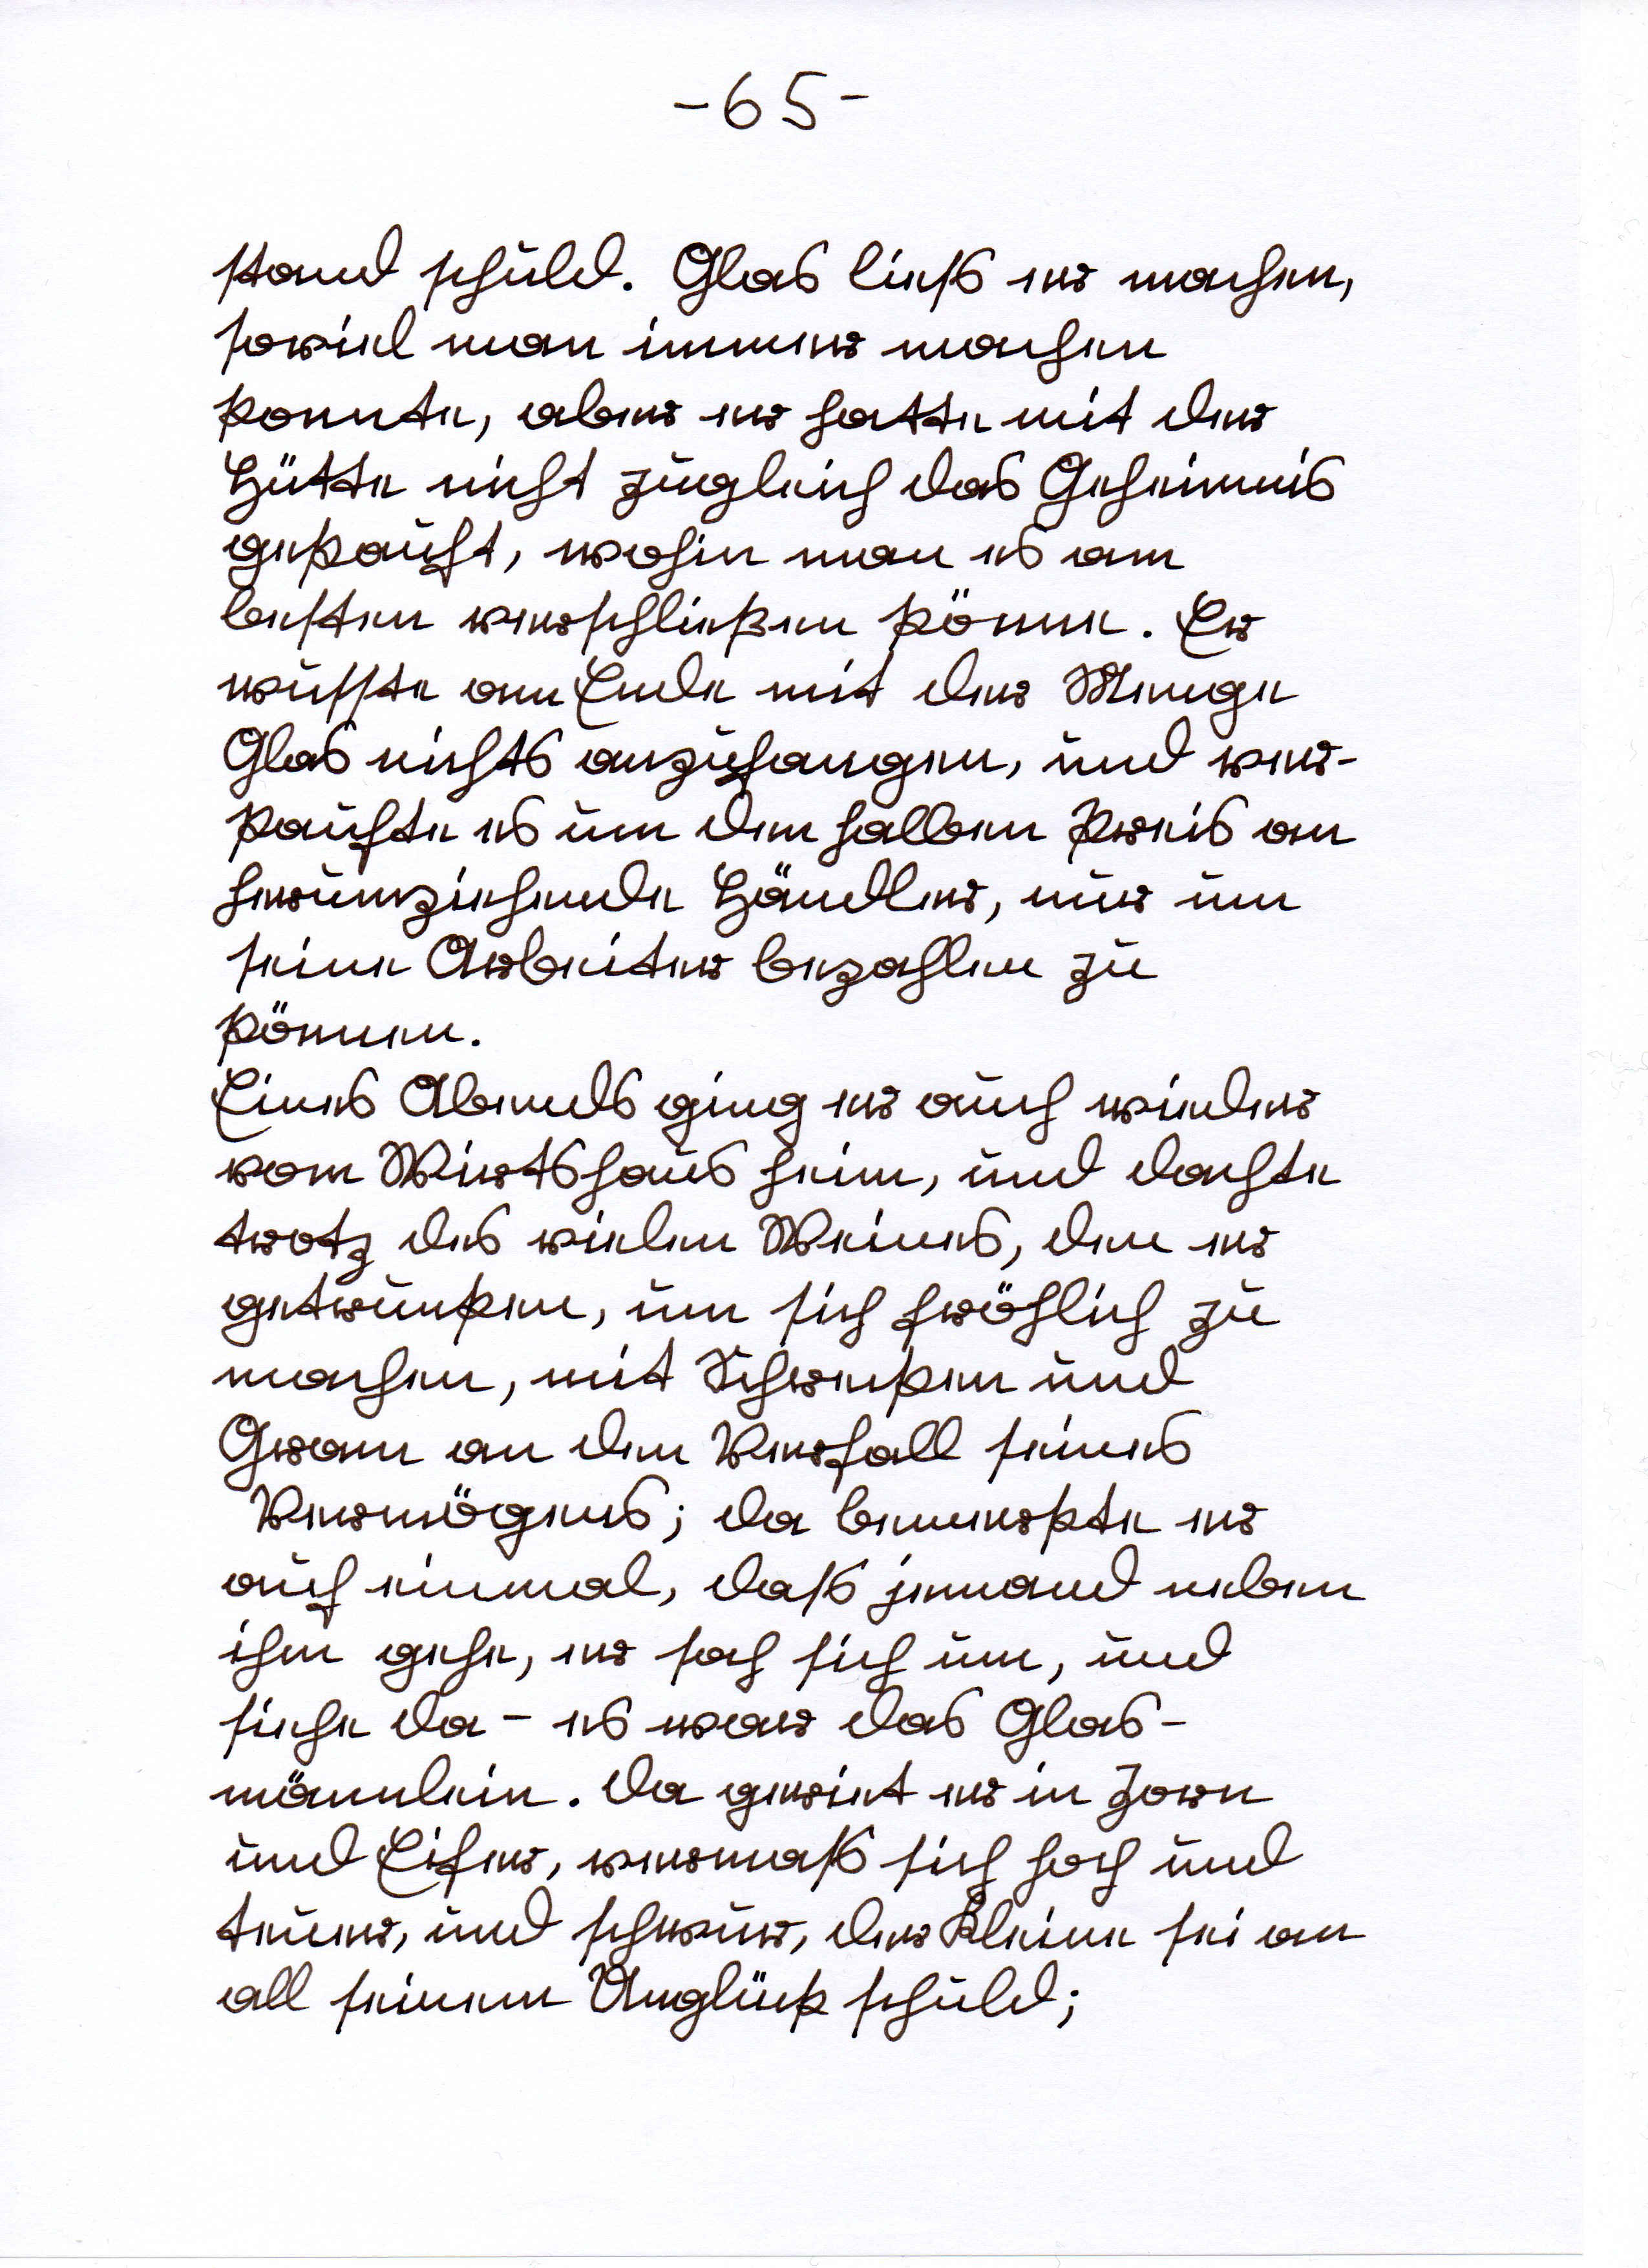 -65-
stand schuld. Glas ließ er machen,
soviel man immer machen
konnte, aber er hatte mit der
Hütte nicht zugleich das Geheimnis
gekauft, wohin man es am
besten verschließen könne. Er
wusste am Ende mit der Menge
Glas nichts anzufangen, und ver-
kaufte es um den halben Preis an
herumziehende Händler, nur um
seine Arbeiter bezahlen zu
können.
Eines Abends ging er auch wieder
vom Wirtshaus heim, und dachte
trotz des vielen Weines, den er
getrunken, um sich fröhlich zu
machen, mit Schrecken und
Gram an den Verfall seines
Vermögens; da bemerkte er
auf einmal, daß jemand neben
ihm gehe, er sah sich um, und
siehe da - es war das Glas-
männlein. Da geriet er in Zorn
und Eifer, vermaß sich hoch und
teuer, und schwur, der Kleine sei an
all seinem Unglück schuld;